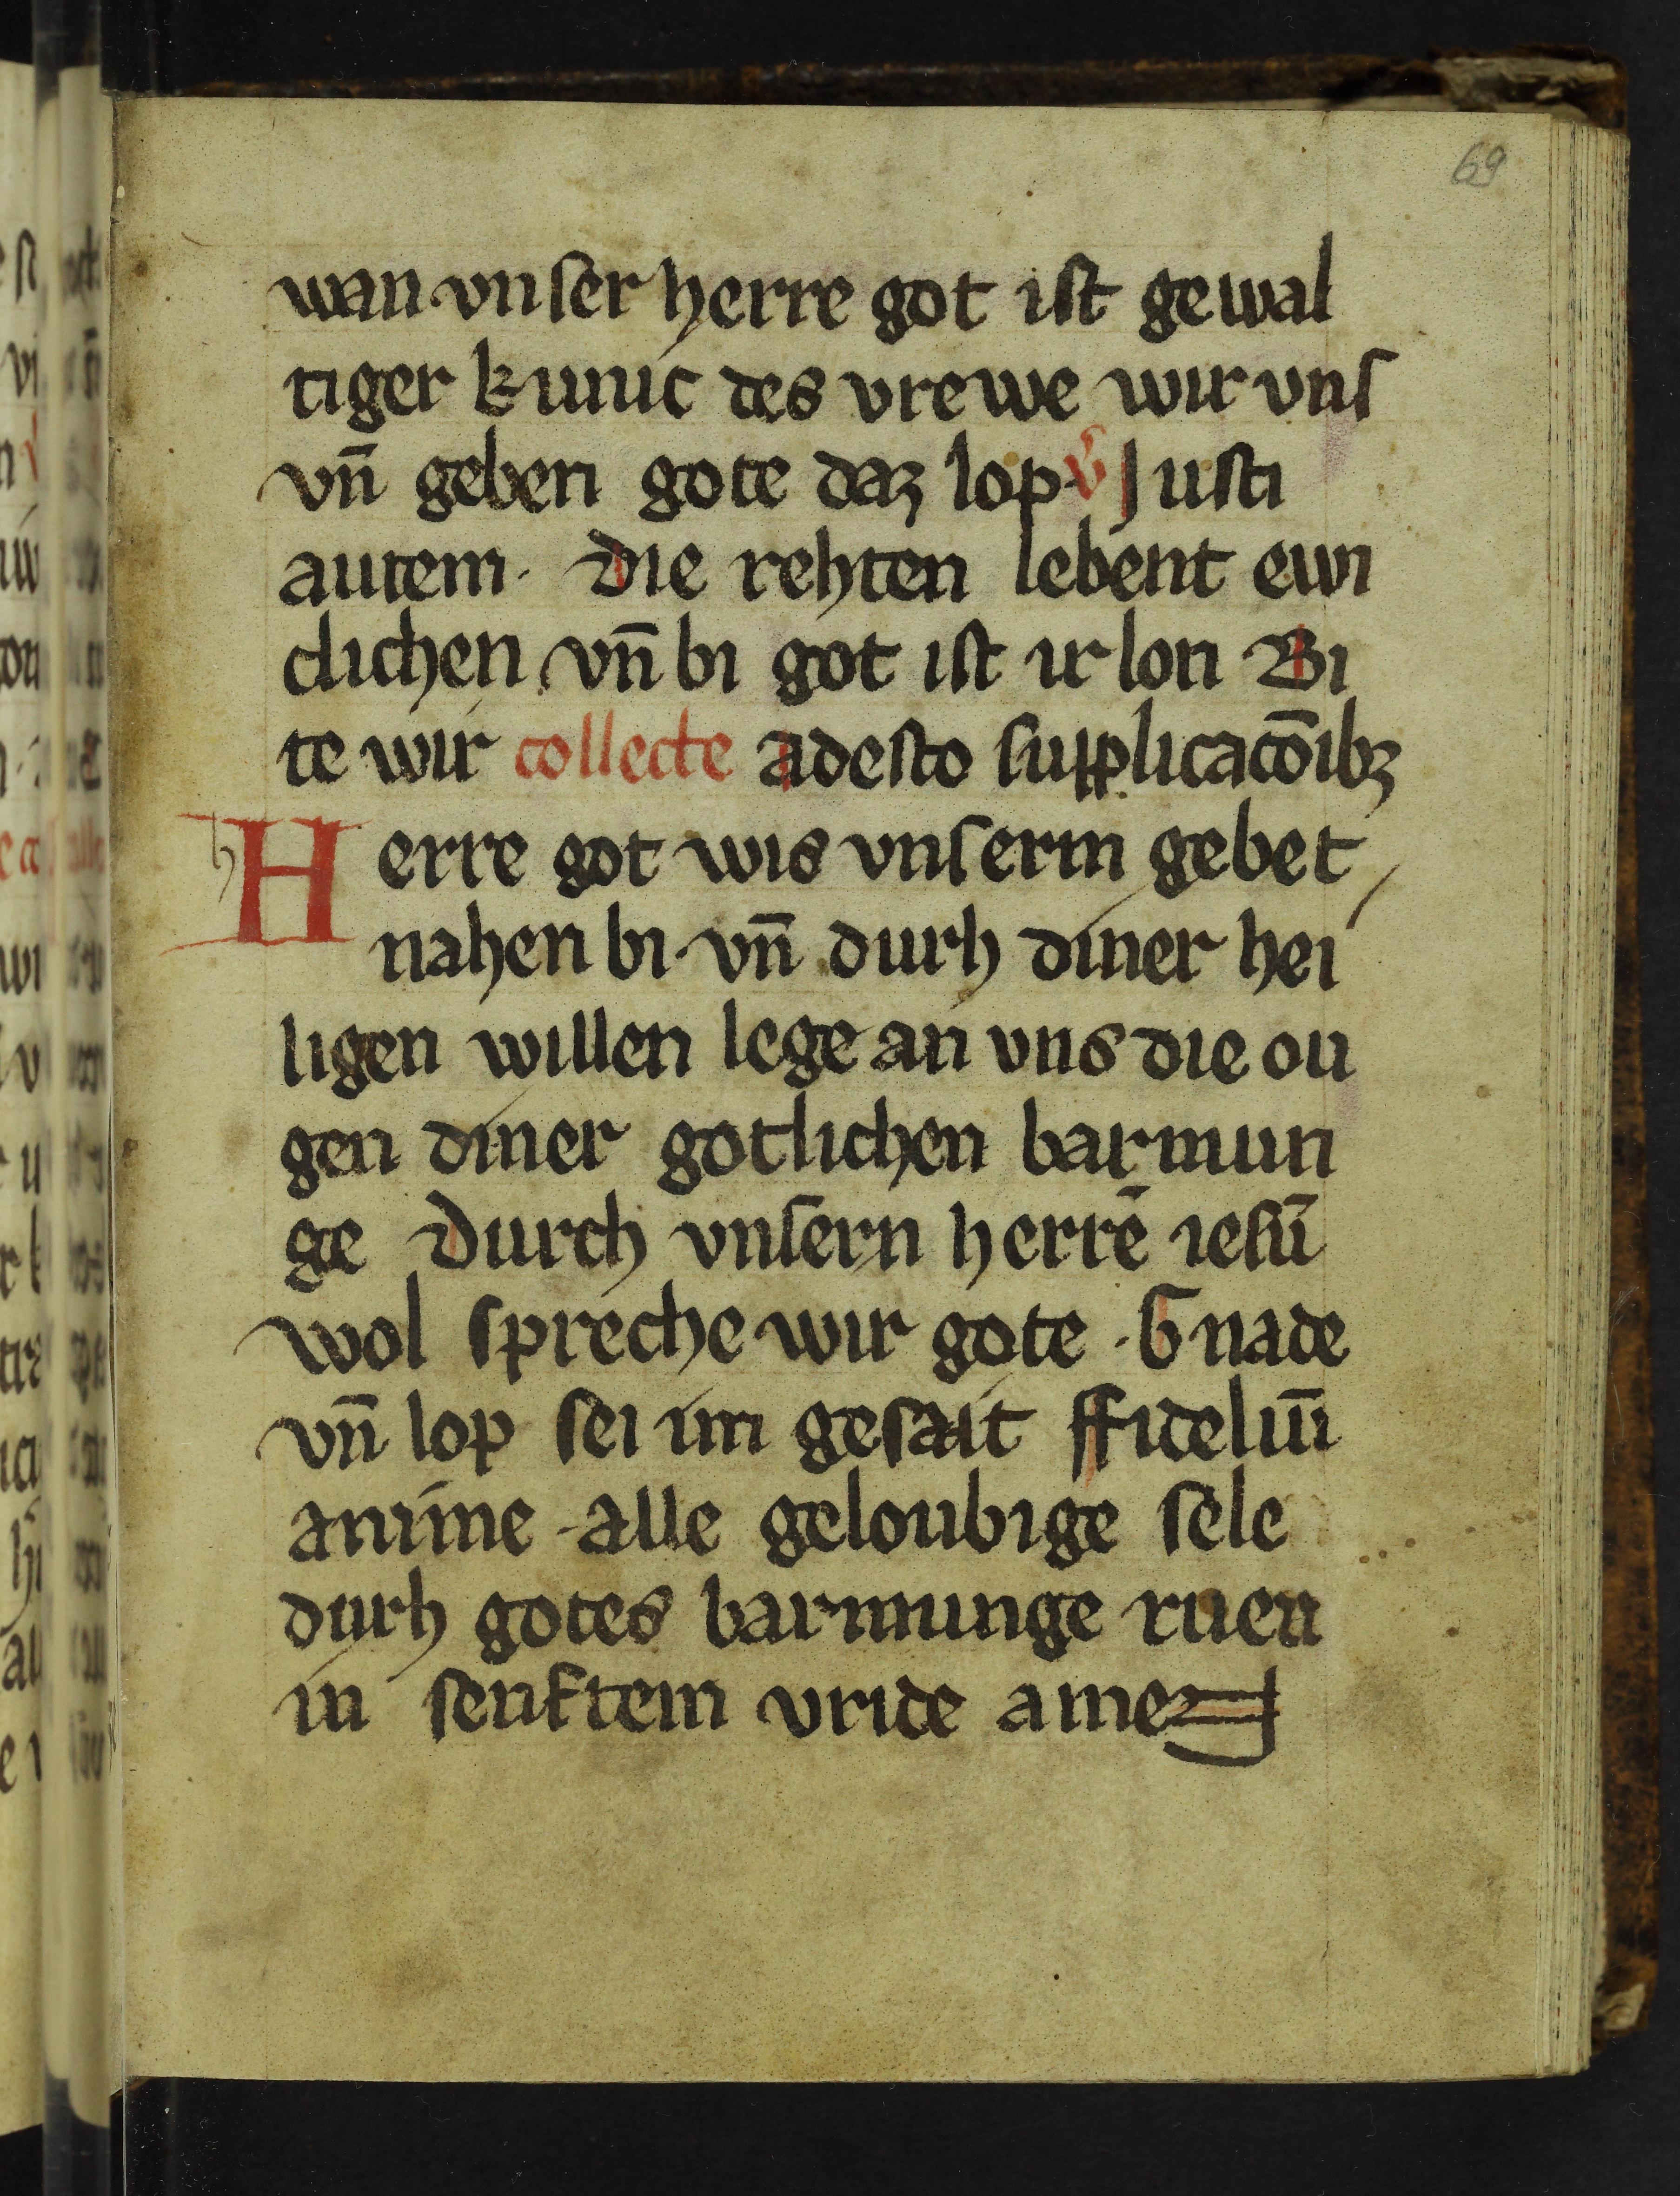 69
wan vnſer herre got iſt gewal
tiger kunic des vrewe wir vnſ
vn̄ geben gote daz lop · Juſti
autem · Die rehten lebent ewi
clichen vn̄ bi got iſt ir lon Bi
te wir collecte adeſto ſupplicacōibꝫ
Herre got wis vnſerm gebet
nahen bi · vn̄ durh diner hei
ligen willen lege an vns die ou
gen diner gotlichen barmun
ge Durch vnſern herrē ieſū
wol ſpreche wir gote · Gnade
vn̄ lop ſei im geſait ffideliū
anime · alle geloubige ſele
durh gotes barmunge ruen
in ſenftem vride amen